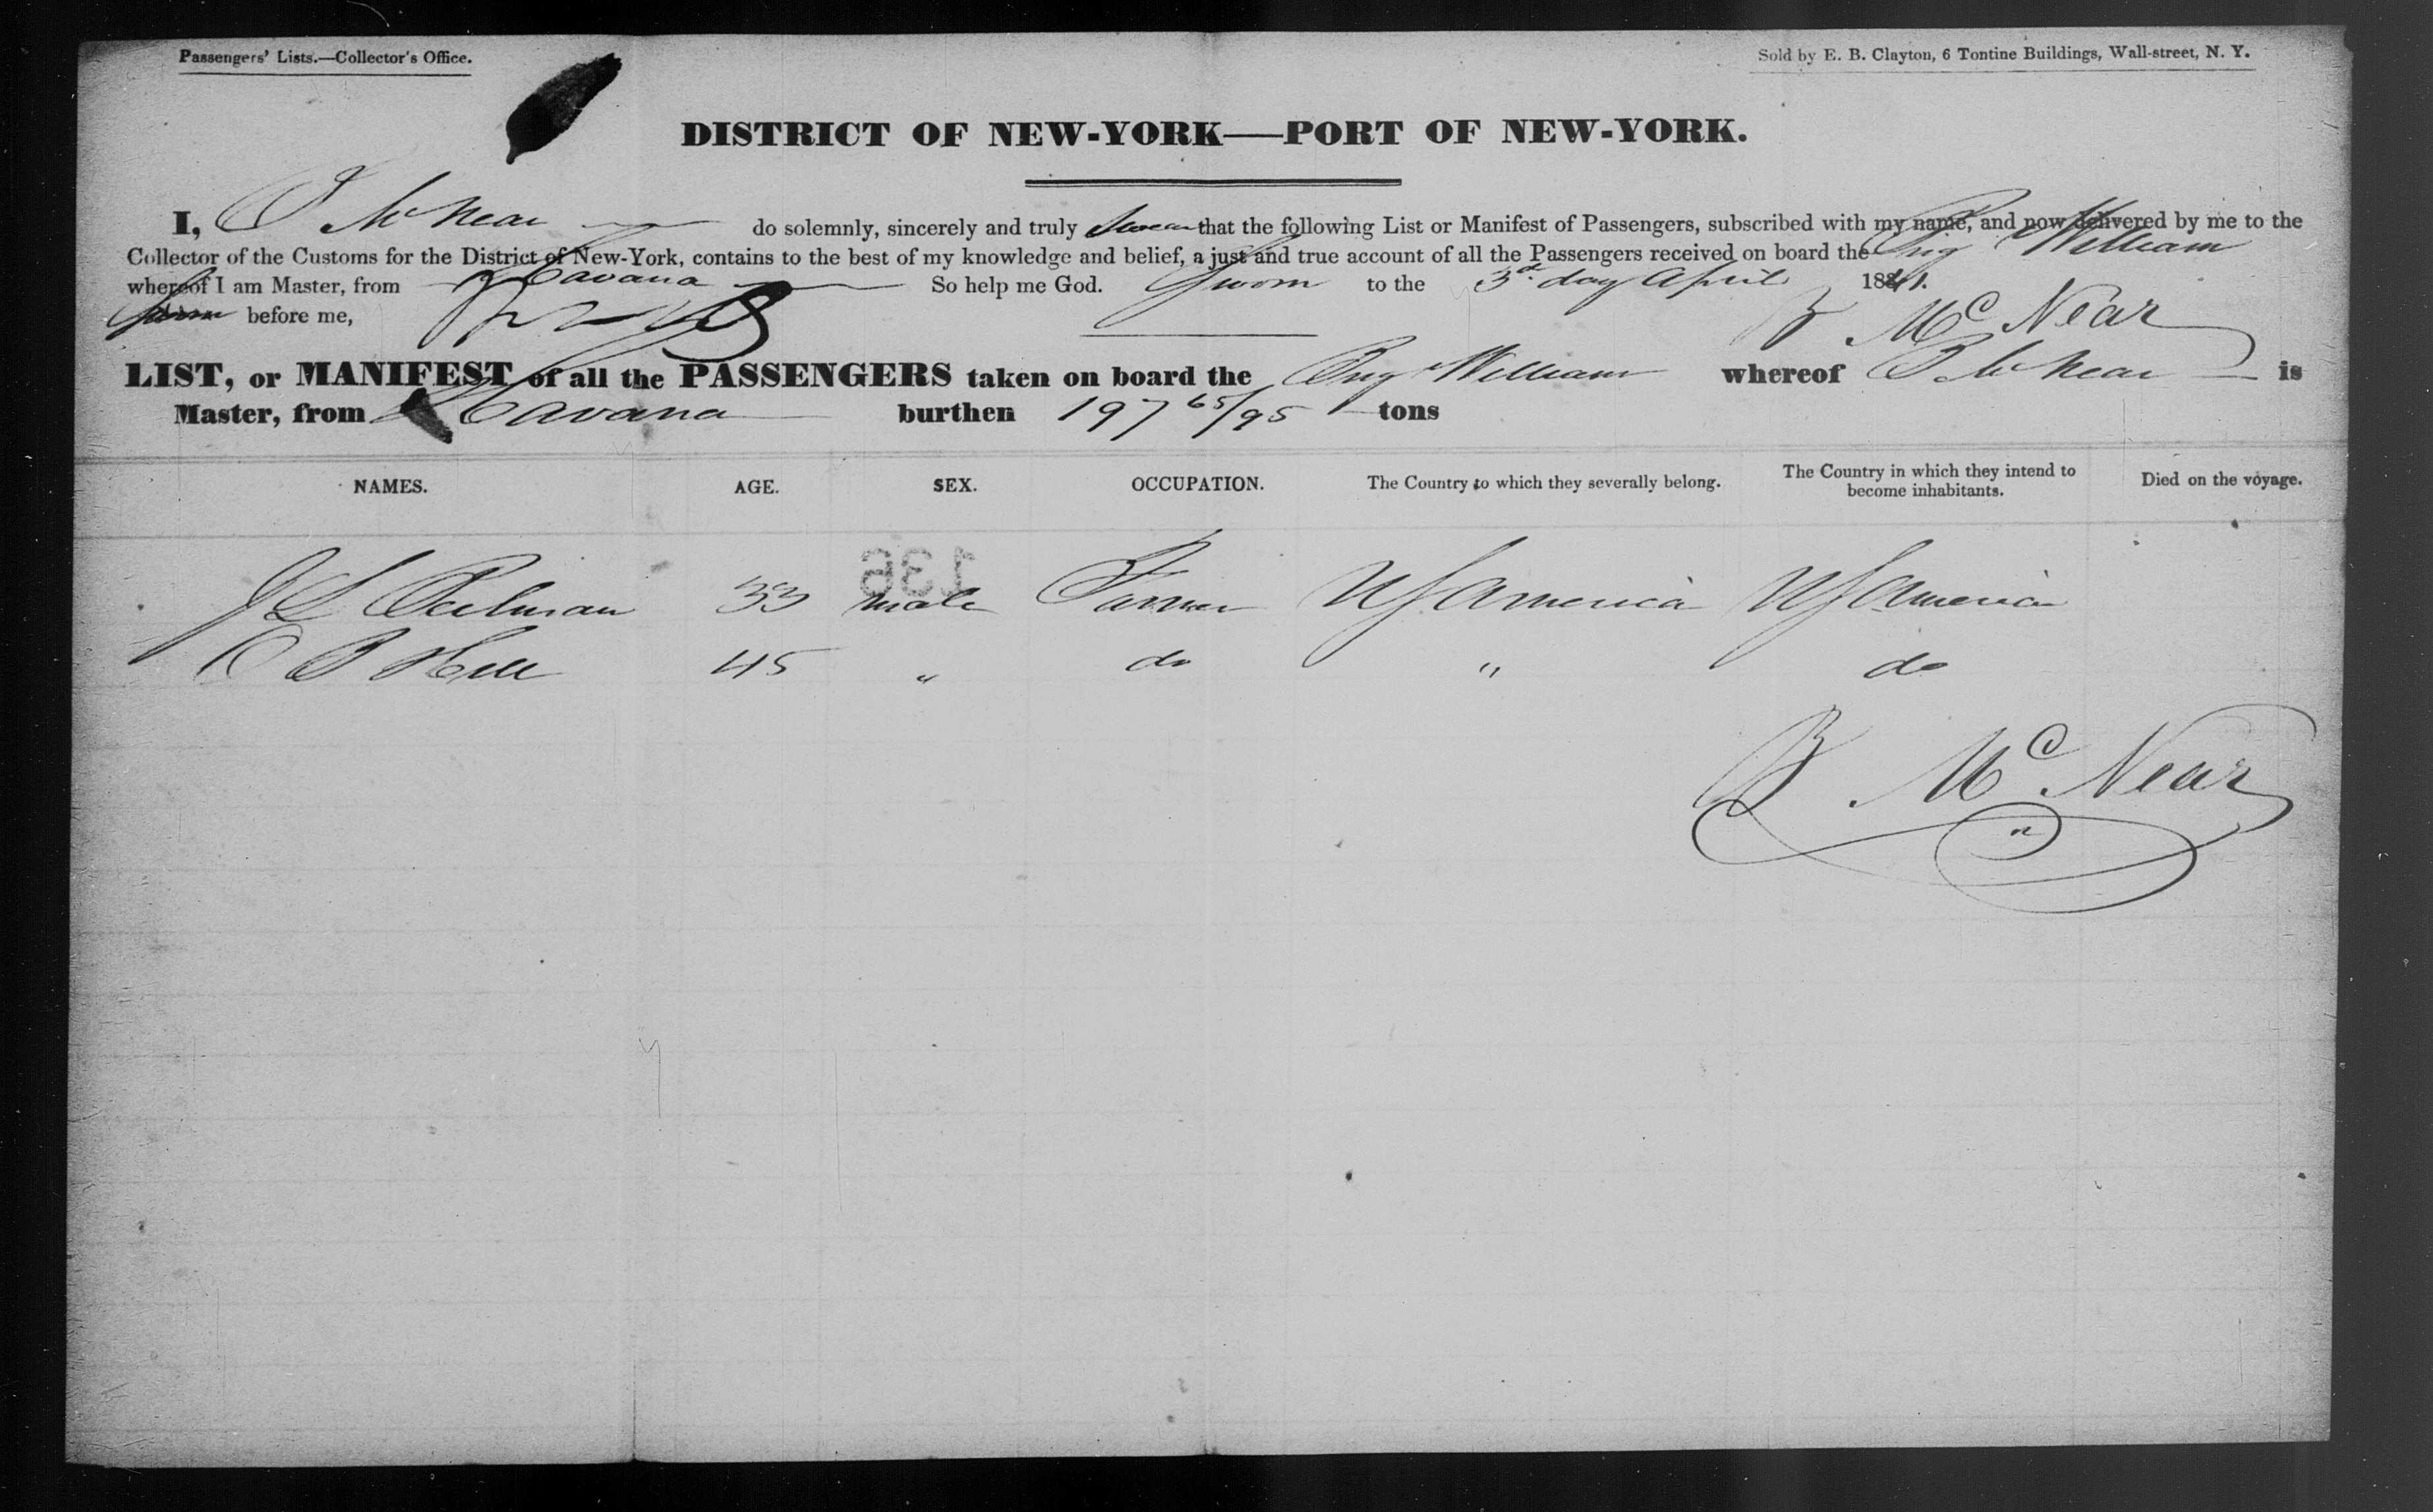 Passengers' Lists.—Collector's Office.
Sold by E. B. Clayton, 6 Tontine Buildings, Wall-street, N. Y.
DISTRICT OF NEW-YORK—PORT OF NEW-YORK.
I, Mc Near do solemnly, sincerely and truly swear that the following List or Manifest of Passengers, subscribed with my name, and now delivered by me to the
Collector of the Customs for the District of New-York, contains to the best of my knowledge and belief, a just and true account of all the Passengers received on board the Brig William
whereof I am Master, from Havana So help me God. Sworn to the 3d day April 1841.
before me,
B Mc Near
LIST, or MANIFEST of all the PASSENGERS taken on board the Brig William whereof B Mc Near is
Master, from Havana burthen 197 65/95 tons
NAMES. AGE. SEX. OCCUPATION. The Country to which they severally belong. The Country in which they intend to become inhabitants. Died on the voyage.
136
J L 33 male Farmer U S America U S America
C B 45 " do " do
B Mc Near